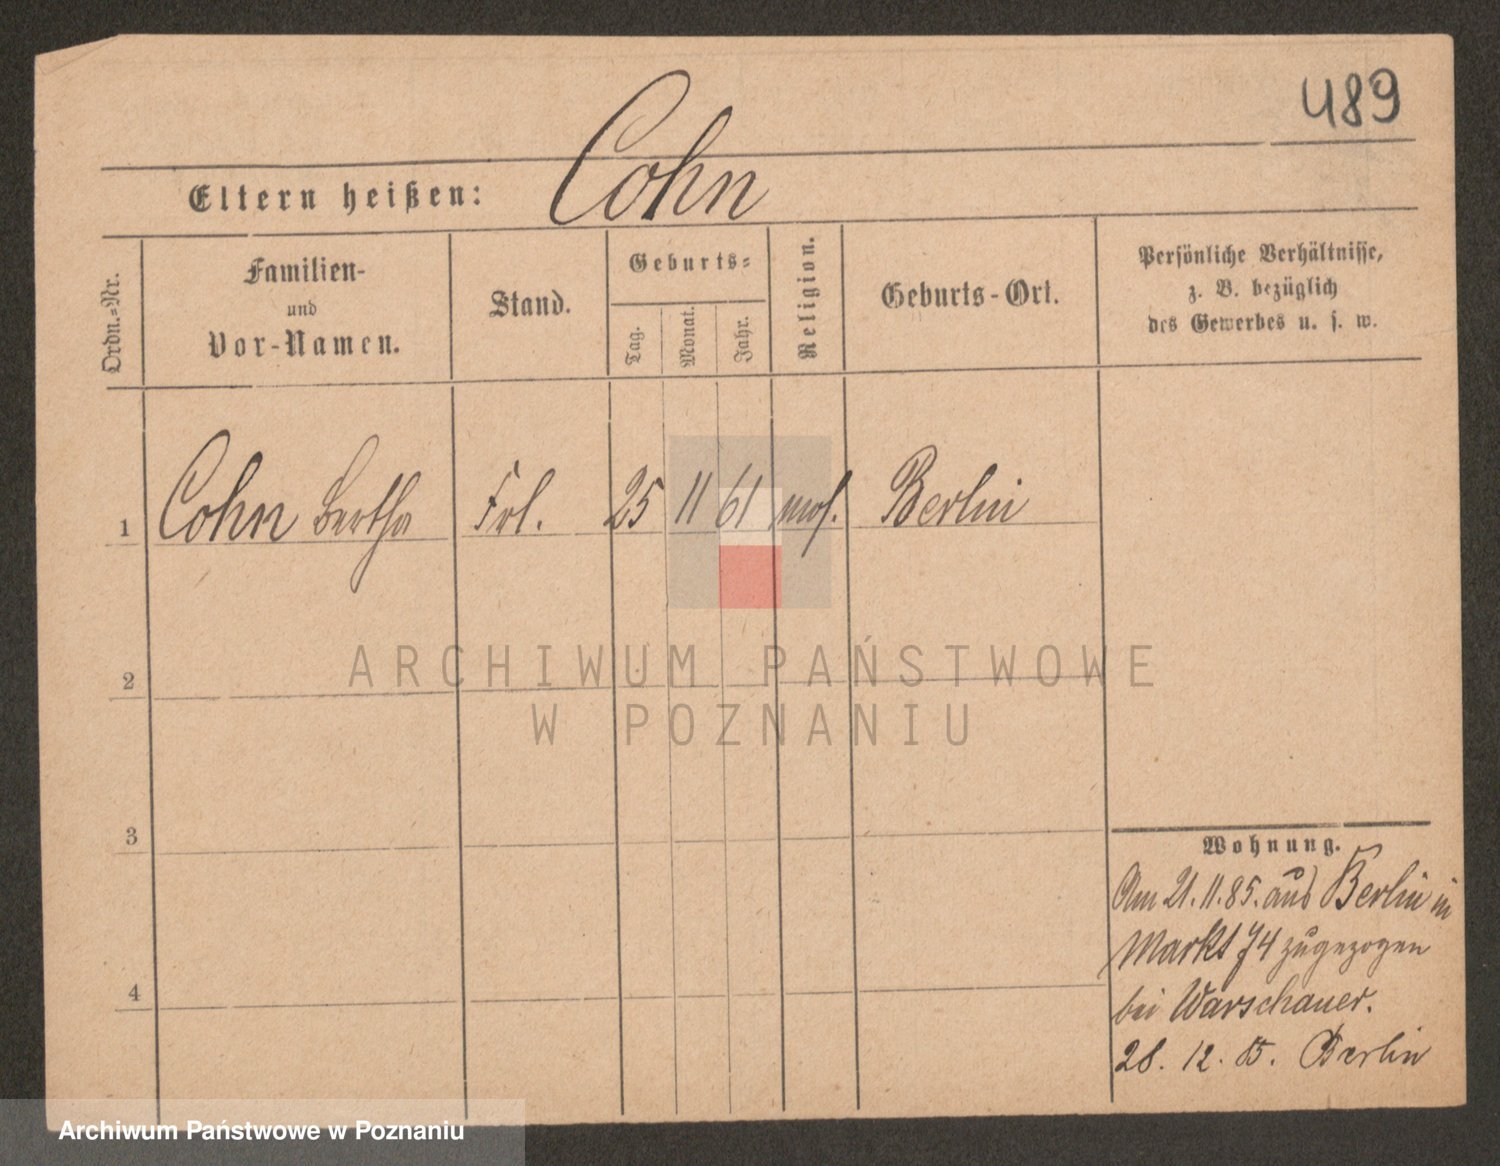 489
Eltern heißen: Cohn
Ordn.=Nr.
Familien-
und
Vor-Namen.
Stand.
Geburts=
Tag.
Monat.
Jahr.
Religion.
Geburts-Ort.
Persönliche Verhältnisse,
z. B. bezüglich
des Gewerbes u. s. w.
1 Cohn Bertha Frl. 25 11 61 mos. Berlin
2
3
4
Wohnung.
Am 21.11.85. aus Berlin in
Markt 74 zugezogen
bei Warschauer.
28. 12. 85. Berlin
ARCHIWUM PAŃSTWOWE
W POZNANIU
Archiwum Państwowe w Poznaniu